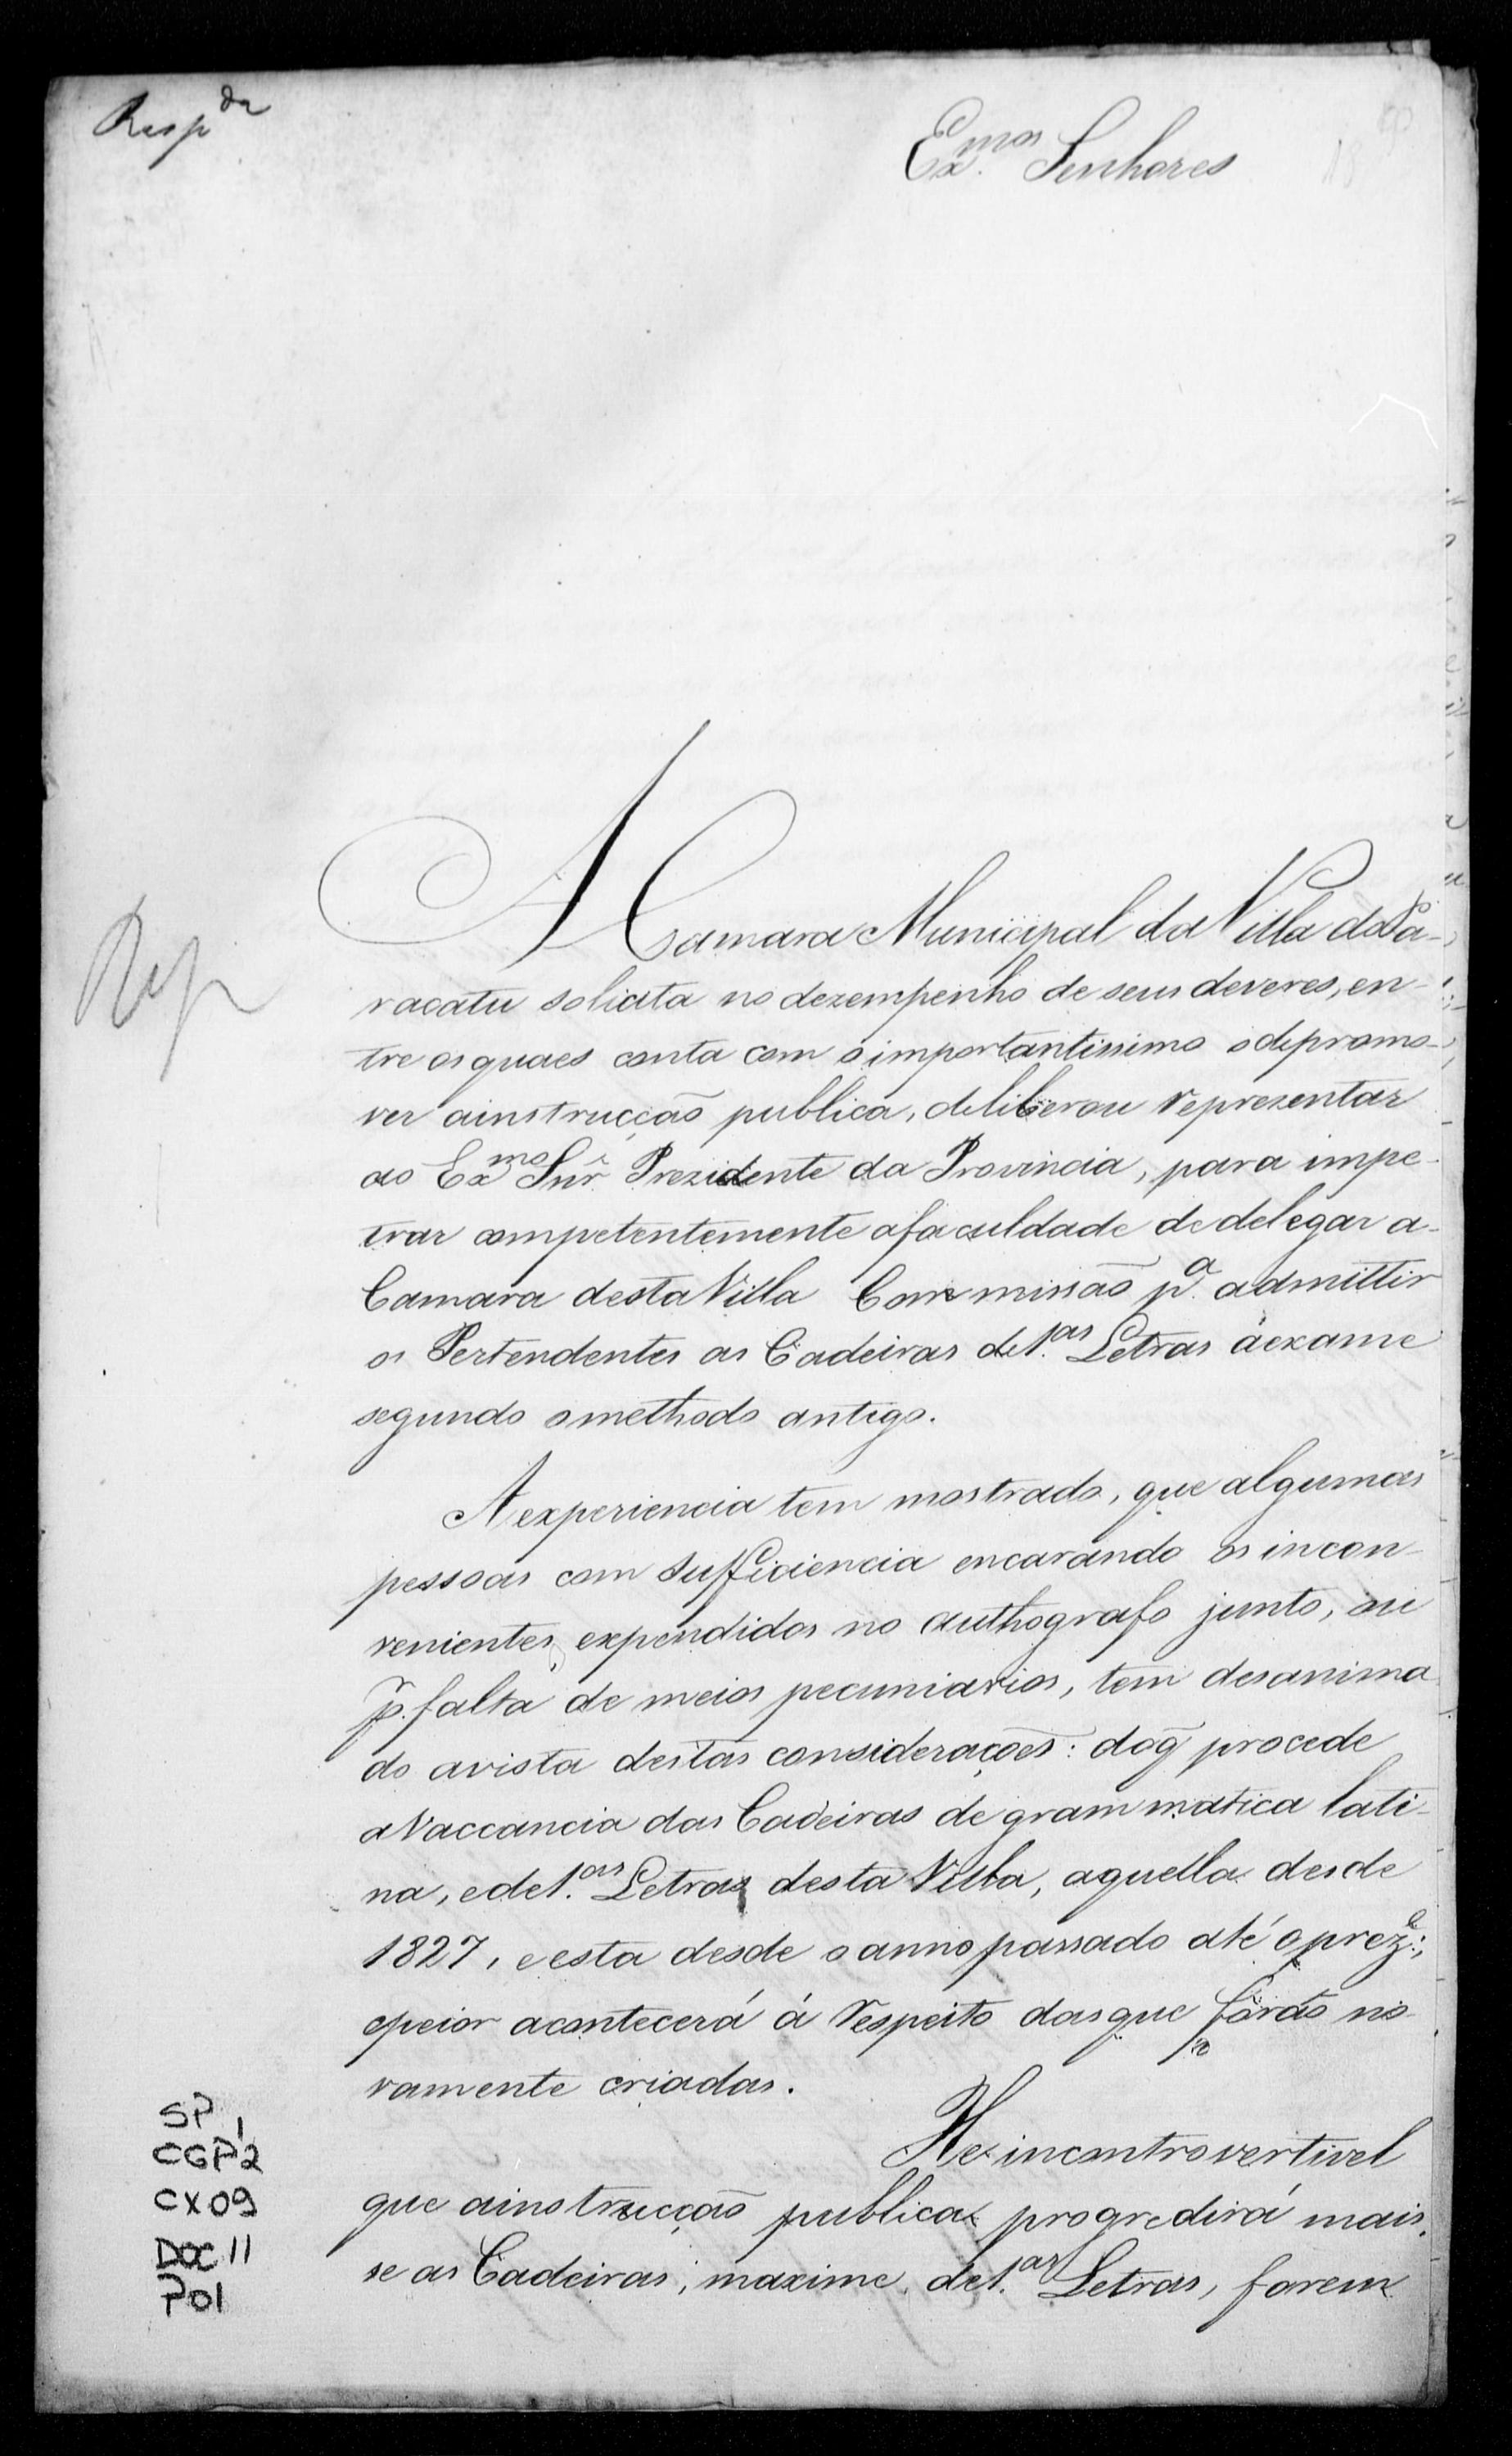 Resp da
Ex.mos Senhores
A Camara Municipal da Villa do Pa-
racatu solicita no dezempenho de seus deveres, en-
tre os quaes conta com o importantissimo o de promo-
ver a instrucção publica, deliberou reprezentar
ao Exmo Snr̃ Prezidente da Provincia, para impe-
trar competentemente a faculdade de delegar a
Camara desta Villa Commissão p.a admittir
os Pertendentes as Cadeiras de 1.as Letras á exame
segundo o methodo antigo.
Resp
A experiencia tem mostrado, que algumas
pessoas com sufficiencia encarando os incon-
venientes expendidos no authografo junto, ou
p.r falta de meios pecuniarios, tem desanima
do avista destas considerações: do q̃ procede
a Vaccancia das Cadeiras de grammatica lati-
na, e de 1.as Letras desta Villa, aquella desde
1827, e esta desde o anno passado até o prez.e;
e peior acontecerá á respeito das que forão no
vamente criadas.
He incontrovertivel
que a instrucção publica progredirá mais,
se as Cadeiras, maxime, de 1.as Letras, forem
SP 1
CGP2
CX09
DOC 11
P01